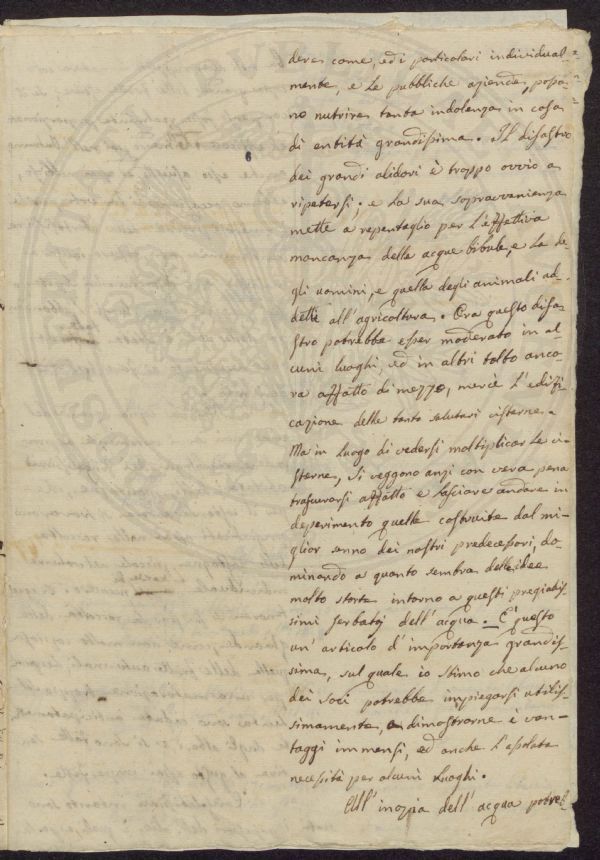 dere come, ed i particolari individual-
mente, e le pubbliche aziende, posso-
no nutrire tanta indolenza in cosa
di entità grandissima. Il disastro
dei grandi alidori è troppo ovvio a
ripetersi; e la sua sopravvenienza
mette a repentaglio per l'effettiva
mancanza delle acque bibule, e la de
gli uomini, e quella degli animali ad-
detti all'agricoltura. Ora questo disa-
stro potrebbe esser moderato in al-
cuni luoghi, ed in altri tolto anco-
ra affatto di mezzo, mercè l'edifi-
cazione delle tanto salutari cisterne.
Ma in luogo di vedersi moltiplicar le ci-
sterne, si veggono anzi con vera pena
trascurarsi affatto e lasciare andare in
deperimento quelle costruite dal mi-
glior senno dei nostri predecessori, do-
minando a quanto sembra delle idee
molto storte intorno a questi pregiabilis-
simi serbatoj dell'acqua. È questo
un' articolo d'importanza grandis-
sima, sul quale io stimo che alcuno
dei soci potrebbe impiegarsi utilis-
simamente, a dimostrarne i van-
taggi immensi, ed anche l'assoluta
necessità per alcuni luoghi.
All'inopia dell'acqua potreb-